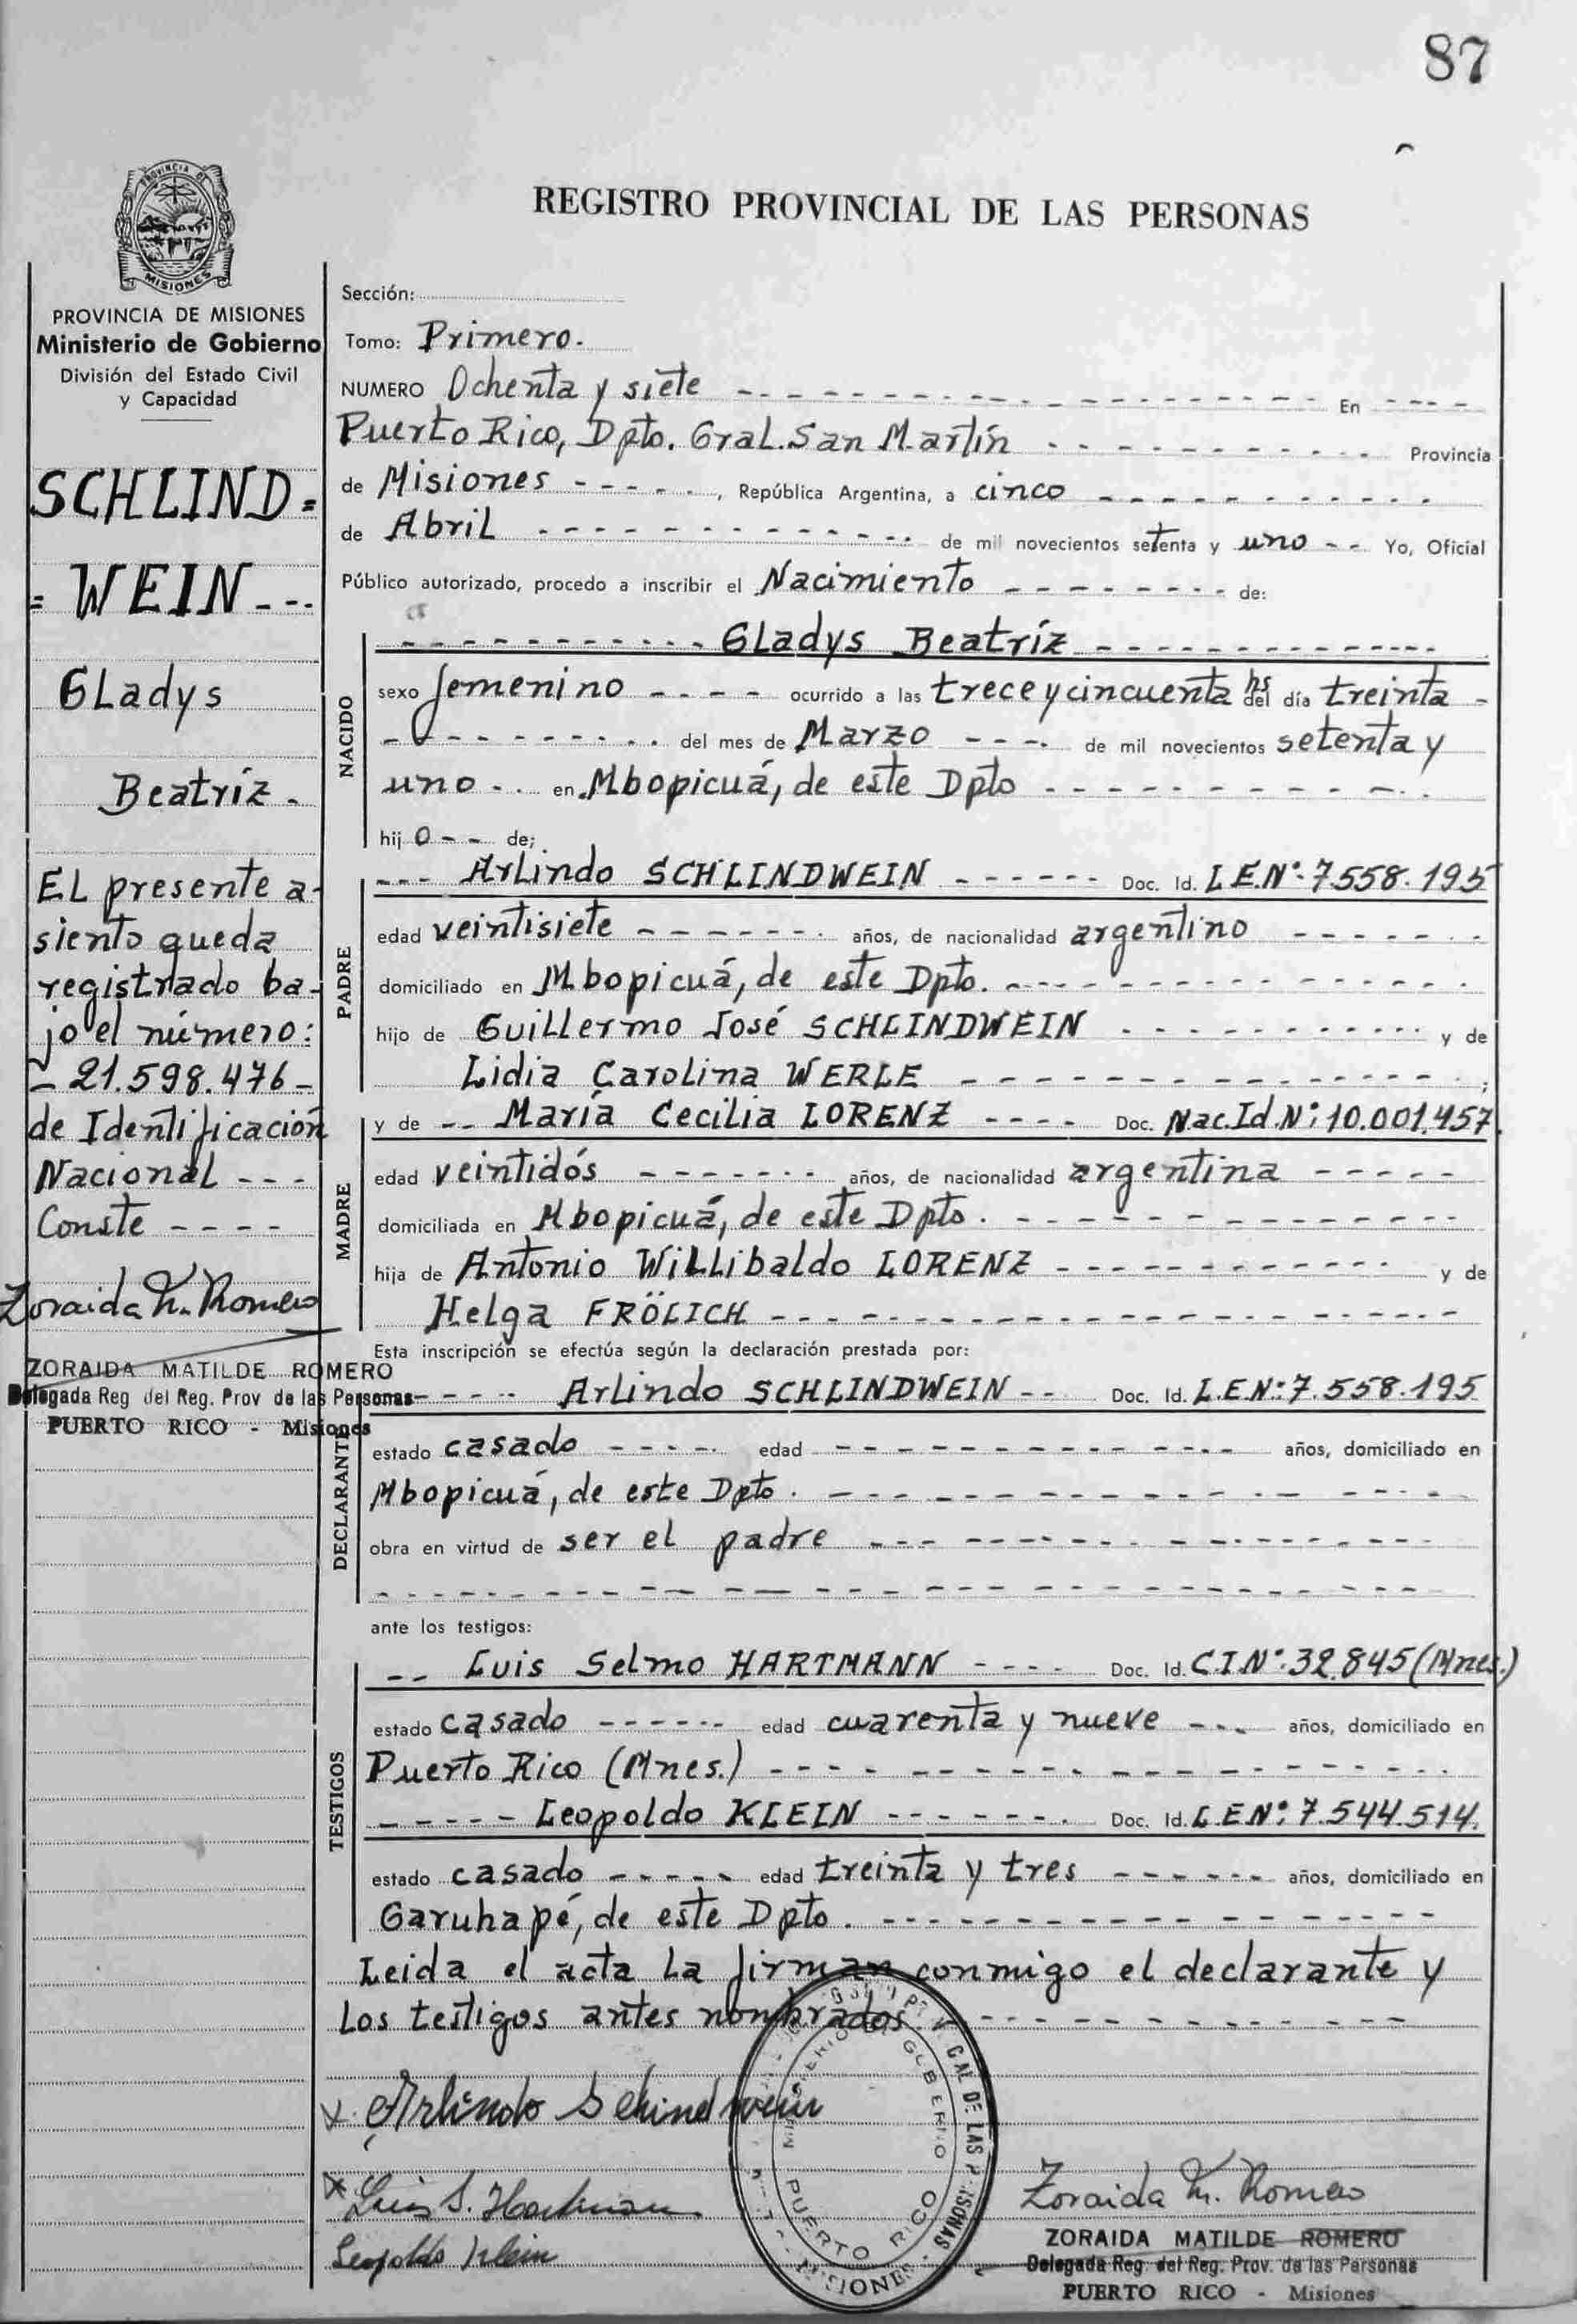 87
PROVINCIA DE
MISIONES
REGISTRO PROVINCIAL DE LAS PERSONAS
PROVINCIA DE MISIONES
Ministerio de Gobierno
División del Estado Civil
y Capacidad
SCHLIND=
= WEIN---
Gladys
Beatríz.
El presente a-
siento queda
registrado ba-
jo el número:
- 21.598.476-
de Identificación
Nacional ---
Conste ----
Zoraida M. Romero
ZORAIDA MATILDE ROMERO
Delegada Reg del Reg. Prov de las Personas
PUERTO RICO - Misiones
Sección:
Tomo: Primero.
NUMERO Ochenta y siete --- En ---
Puerto Rico, Dpto. Gral. San Martín --- Provincia
de Misiones ---, República Argentina, a cinco ---
de Abril --- de mil novecientos setenta y uno -- Yo, Oficial
Público autorizado, procedo a inscribir el Nacimiento --- de:
NACIDO
--- Gladys Beatríz ---
sexo femenino --- ocurrido a las trece y cincuenta hs del día treinta -
--- del mes de Marzo --- de mil novecientos setenta y
uno -- en Mbopicuá, de este Dpto ---
hij o -- de;
PADRE
--- Arlindo SCHLINDWEIN --- Doc. Id. L.E.Nº: 7.558.195
edad veintisiete --- años, de nacionalidad argentino ---
domiciliado en Mbopicuá, de este Dpto. ---
hijo de Guillermo José SCHLINDWEIN --- y de
Lidia Carolina WERLE --- ;
MADRE
y de -- María Cecilia LORENZ ---- Doc. Nac. Id. Nº: 10.001.457.
edad veintidós --- años, de nacionalidad argentina ---
domiciliada en Mbopicuá, de este Dpto. ---
hija de Antonio Willibaldo LORENZ --- y de
Helga FRÖLICH ---
Esta inscripción se efectúa según la declaración prestada por:
DECLARANTE
--- Arlindo SCHLINDWEIN -- Doc. Id. L.E.Nº: 7.558.195
estado casado --- edad --- años, domiciliado en
Mbopicuá, de este Dpto. ---
obra en virtud de ser el padre ---
ante los testigos:
TESTIGOS
-- Luis Selmo HARTMANN ---- Doc. Id. C.I.Nº: 32.845 (Mnes.)
estado casado --- edad cuarenta y nueve --- años, domiciliado en
Puerto Rico (Mnes.) ---
----- Leopoldo KLEIN --- Doc. Id. L.E.Nº: 7.544.514.
estado casado --- edad treinta y tres --- años, domiciliado en
Garuhapé, de este Dpto. ---
Leida el acta la firman conmigo el declarante y
los testigos antes nombrados. ---
x Arlindo Schindwein
x Luis S. Hartmann
Leopoldo Klein
MINISTERIO GOBERNO
DE LAS PERSONAS
PUERTO RICO
MISIONES
Zoraida M. Romero
ZORAIDA MATILDE ROMERO
Delegada Reg. del Reg. Prov. de las Personas
PUERTO RICO - Misiones